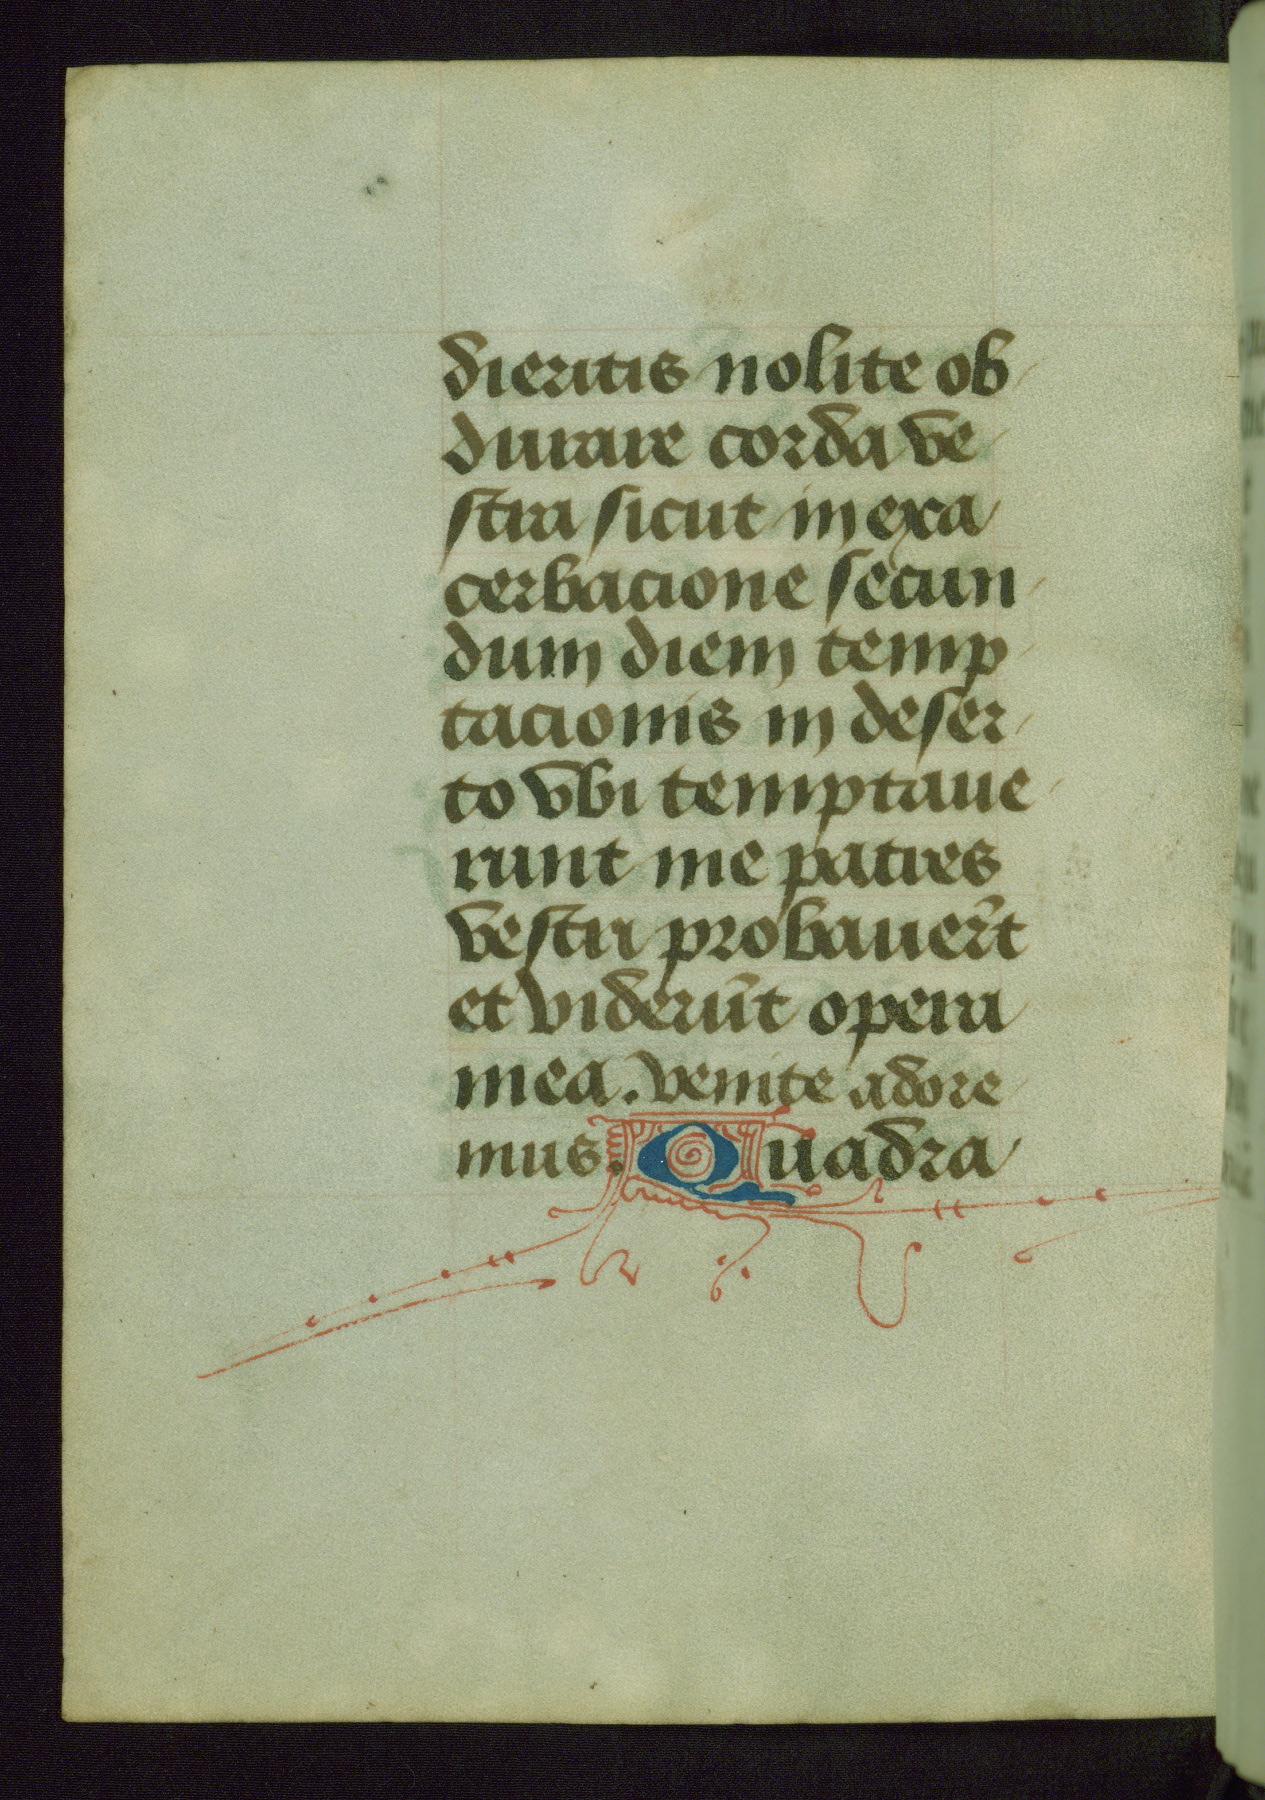 dieritis nolite ob
durare corda ve
stra sicut in exa
cerbacione secun
dum diem temp
tacionis in deser
to vbi temptaue
runt me patres
vestri probauer̄t
et viderūt opera
mea. venite adore
mus. Quadra